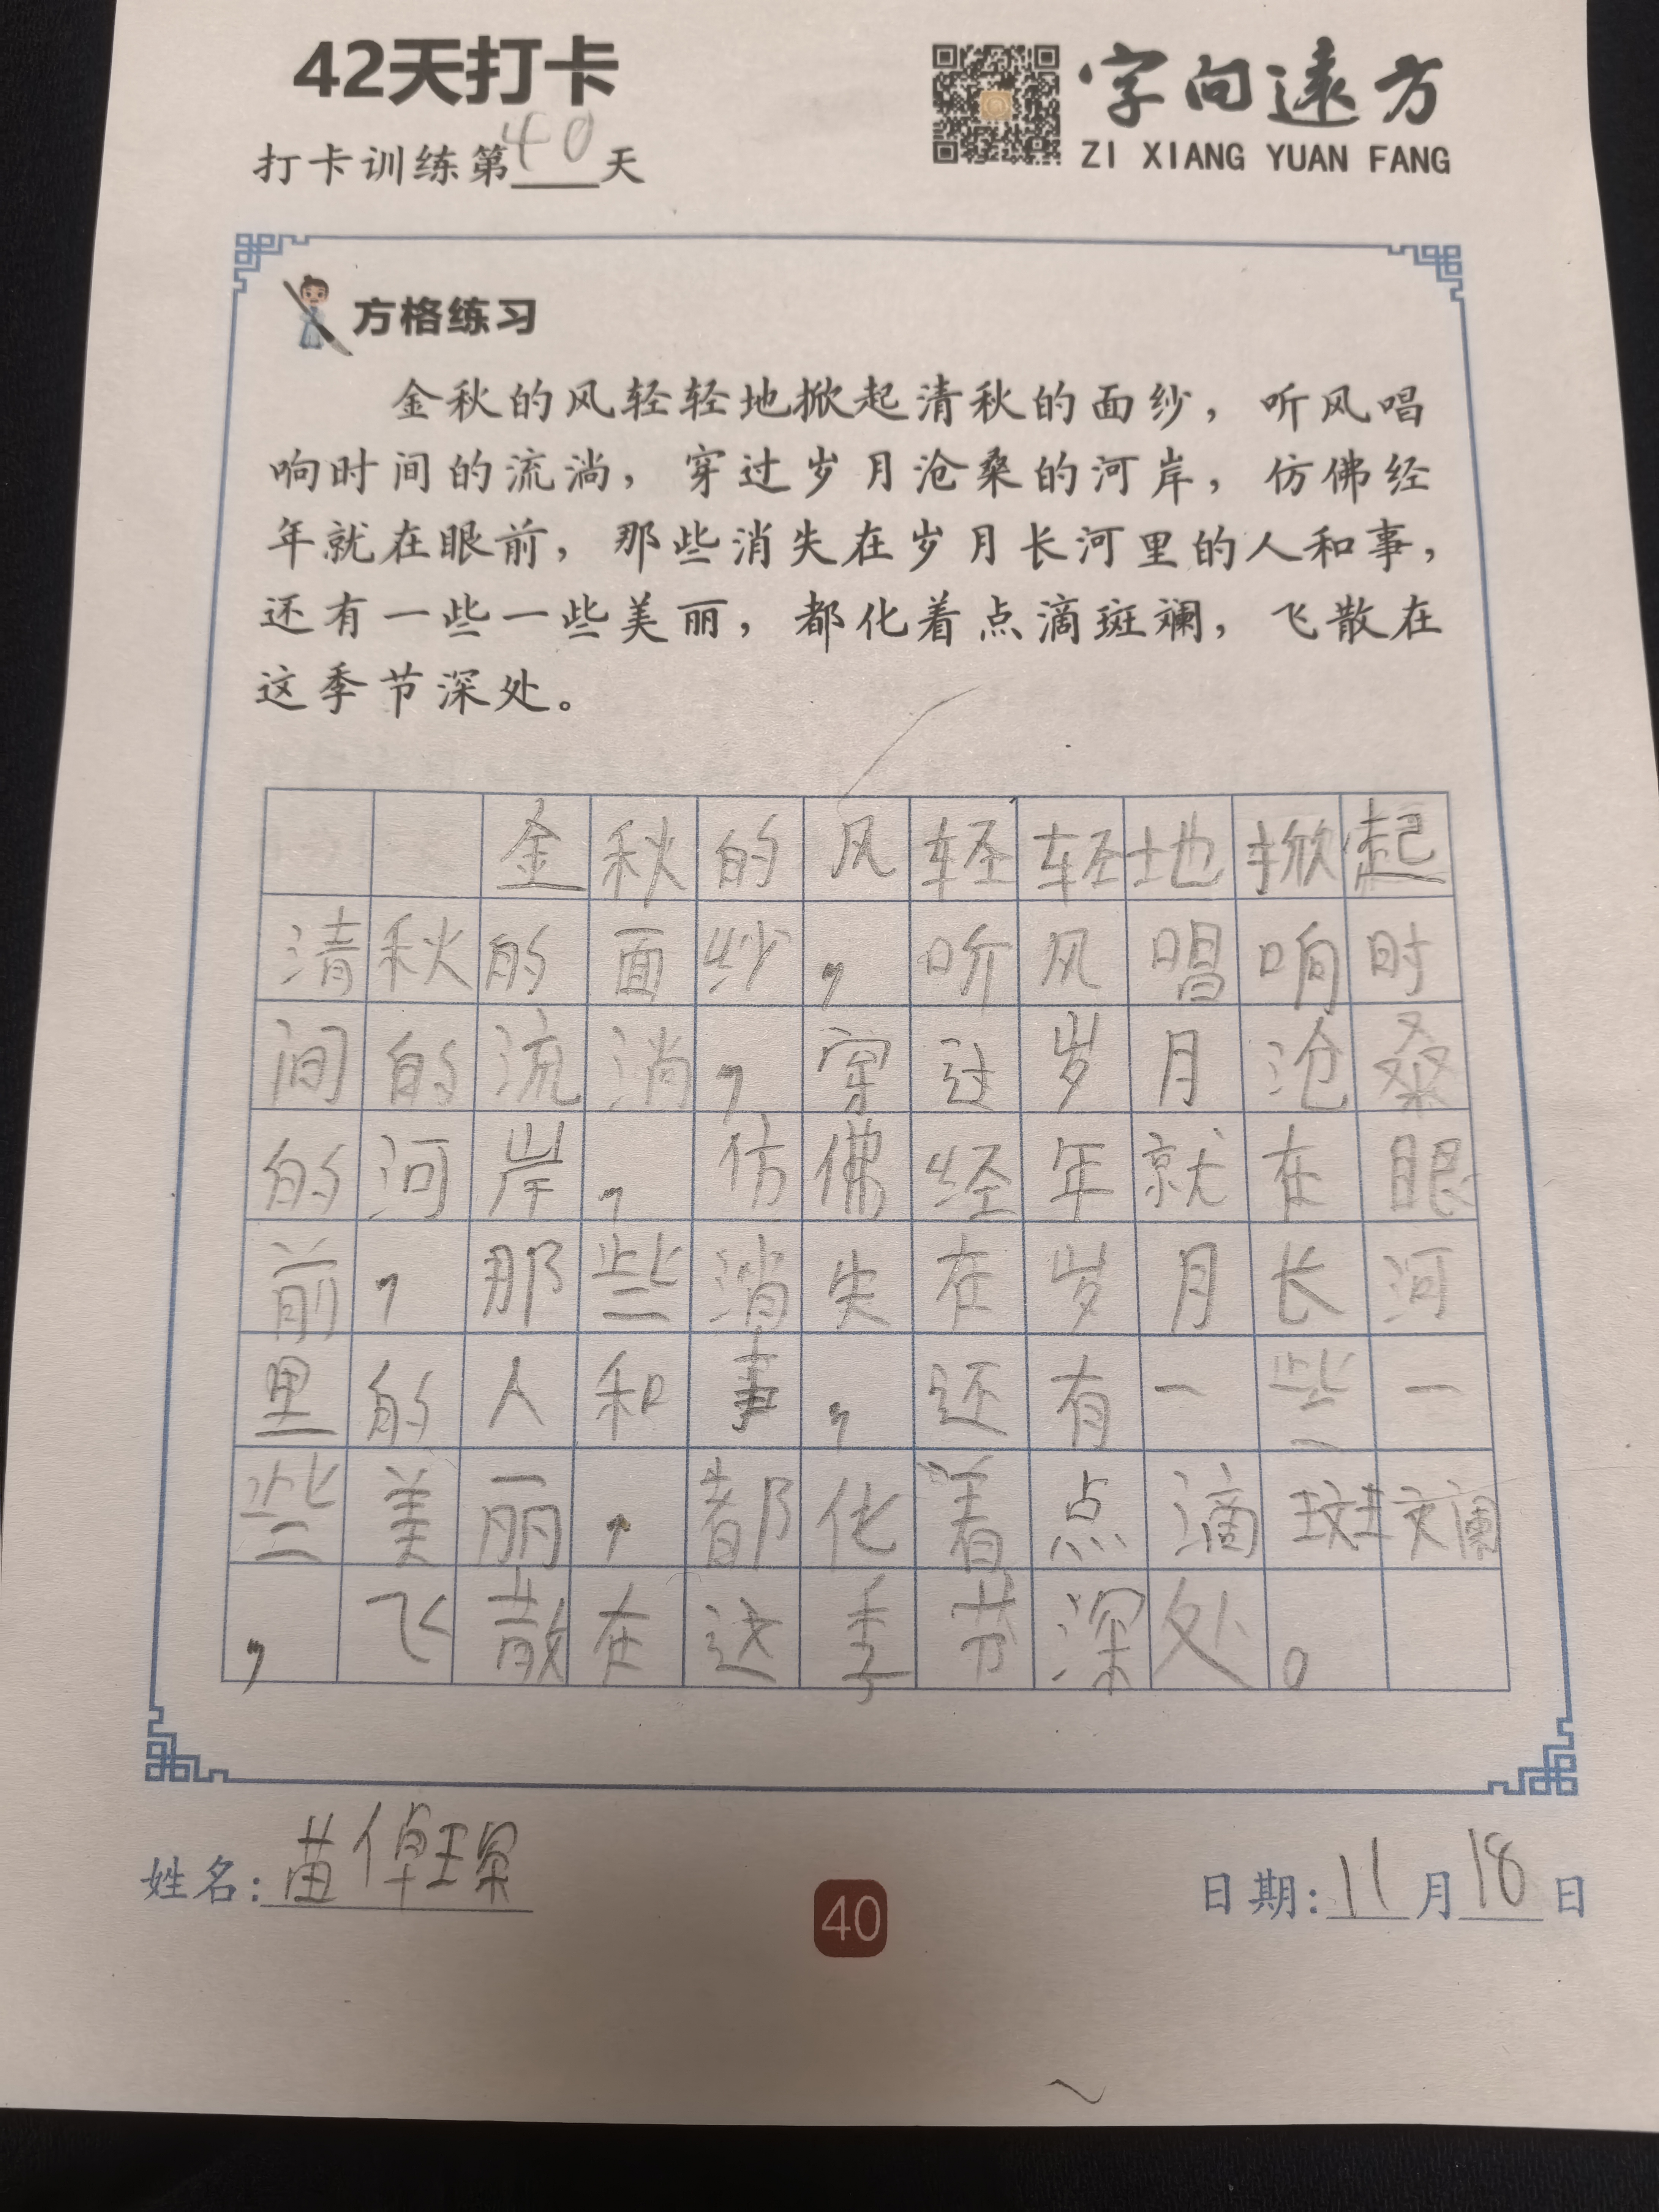 42天打卡
打卡训练第40天
字向遠方
ZI XIANG YUAN FANG
方格练习
金秋的风轻轻地掀起清秋的面纱，听风唱
响时间的流淌，穿过岁月沧桑的河岸，仿佛经
年就在眼前，那些消失在岁月长河里的人和事，
还有一些一些美丽，都化着点滴斑斓，飞散在
这季节深处。
金秋的风轻轻地掀起
清秋的面纱，听风唱响时
间的流淌，穿过岁月沧桑
的河岸，仿佛经年就在眼
前，那些消失在岁月长河
里的人和事，还有一些一
些美丽，都化着点滴斑斓
，飞散在这季节深处。
姓名：苗倬琛
40
日期：11月18日